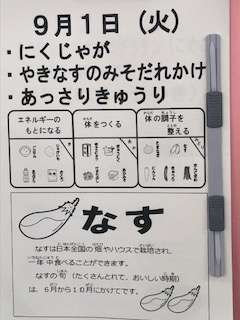 9月1日（火）
・にくじゃが
・やきなすのみそだれかけ
・あっさりきゅうり
エネルギーの
もとになる
体をつくる
体の調子を
整える
なす
なすは日本全国の畑やハウスで栽培され、
一年中食べることができます。
なすの旬（たくさんとれて、おいしい時期）
は、6月から10月にかけてです。